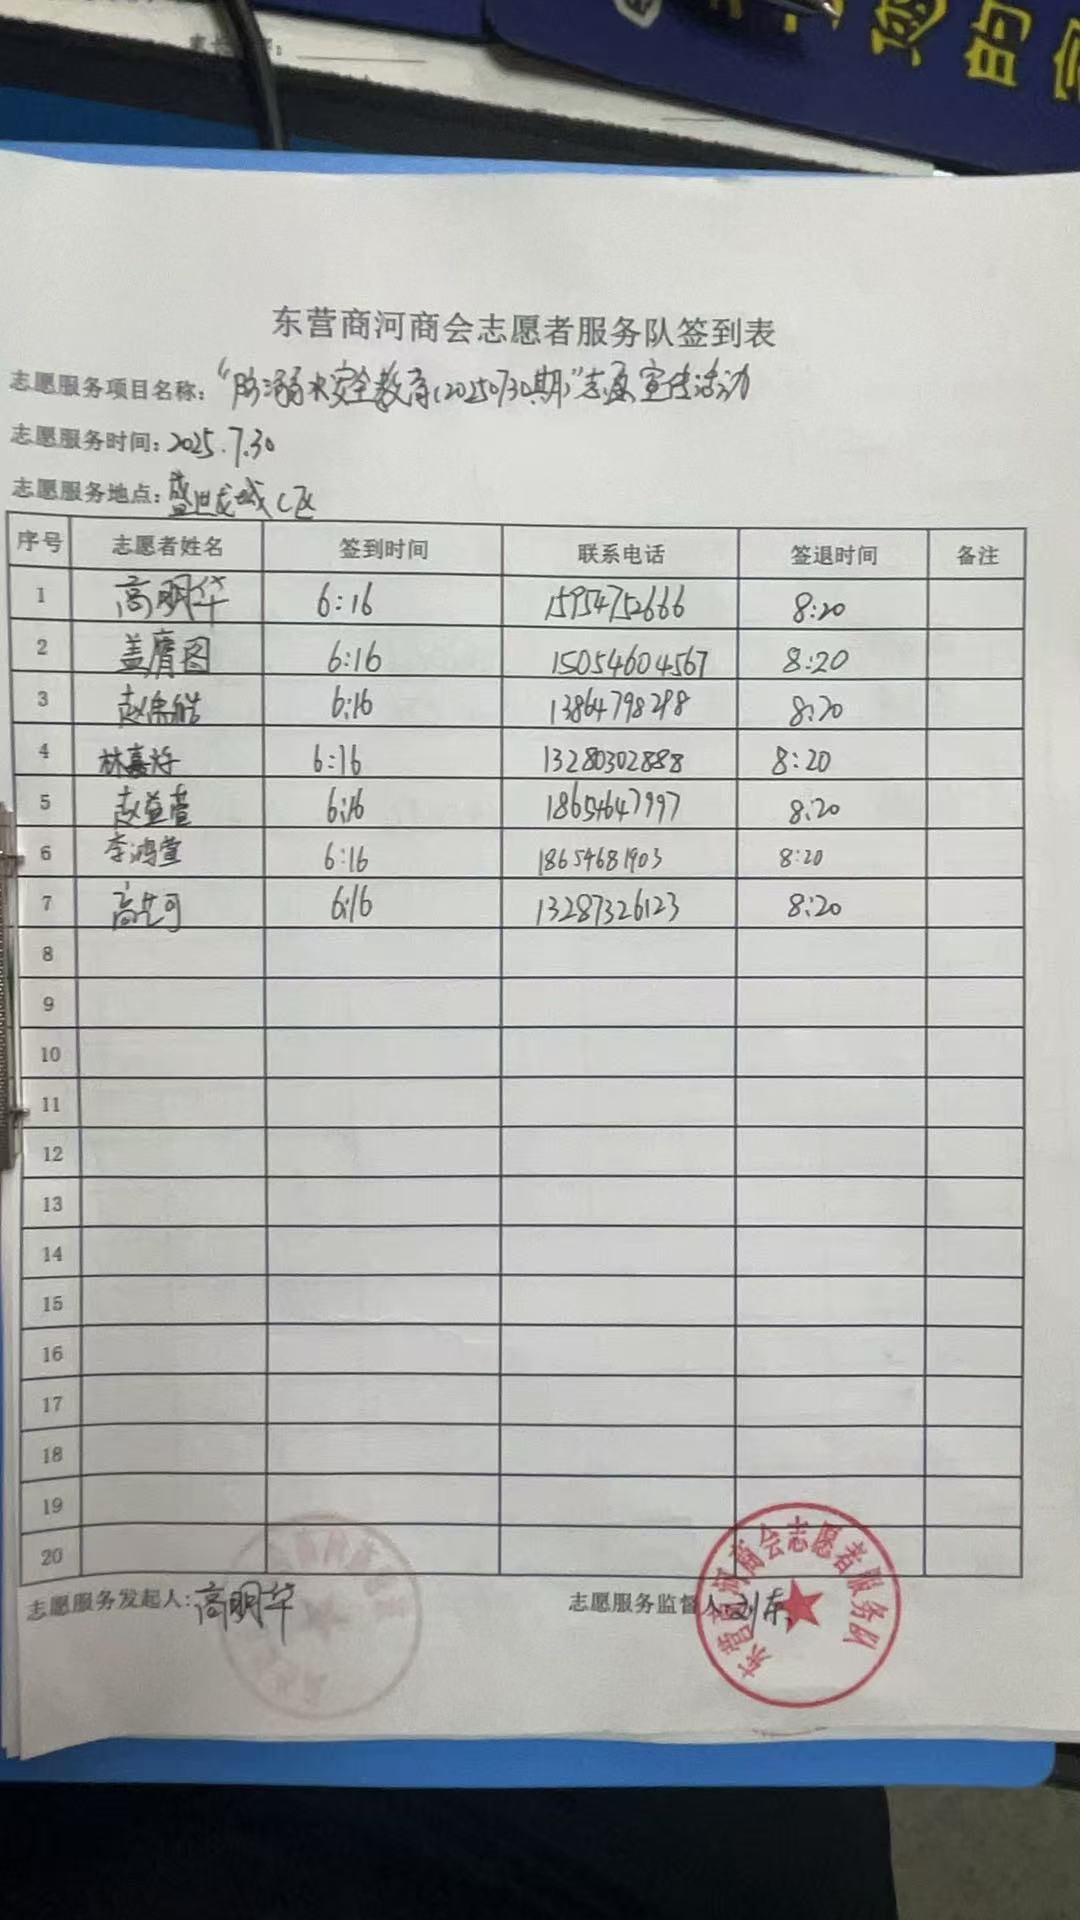 您
的
东营商河商会志愿者服务队签到表
志愿服务项目名称：“防溺水安全教育(20250730期)”志愿宣传活动
志愿服务时间：2025.7.30
志愿服务地点：盛世龙城C区
序号 志愿者姓名 签到时间 联系电话 签退时间 备注
1 高明华 6:16 15954752666 8:20
2 盖膺图 6:16 15054604567 8:20
3 赵 6:16 13864798298 8:20
4 林嘉许 6:16 13280302888 8:20
5 赵益萱 6:16 18654647997 8:20
6 李鸿萱 6:16 18654681903 8:20
7 高艺可 6:16 13287326123 8:20
8
9
10
11
12
13
14
15
16
17
18
19
20
志愿服务发起人：高明华 志愿服务监督人 刘东
东营商河商会志愿者服务队